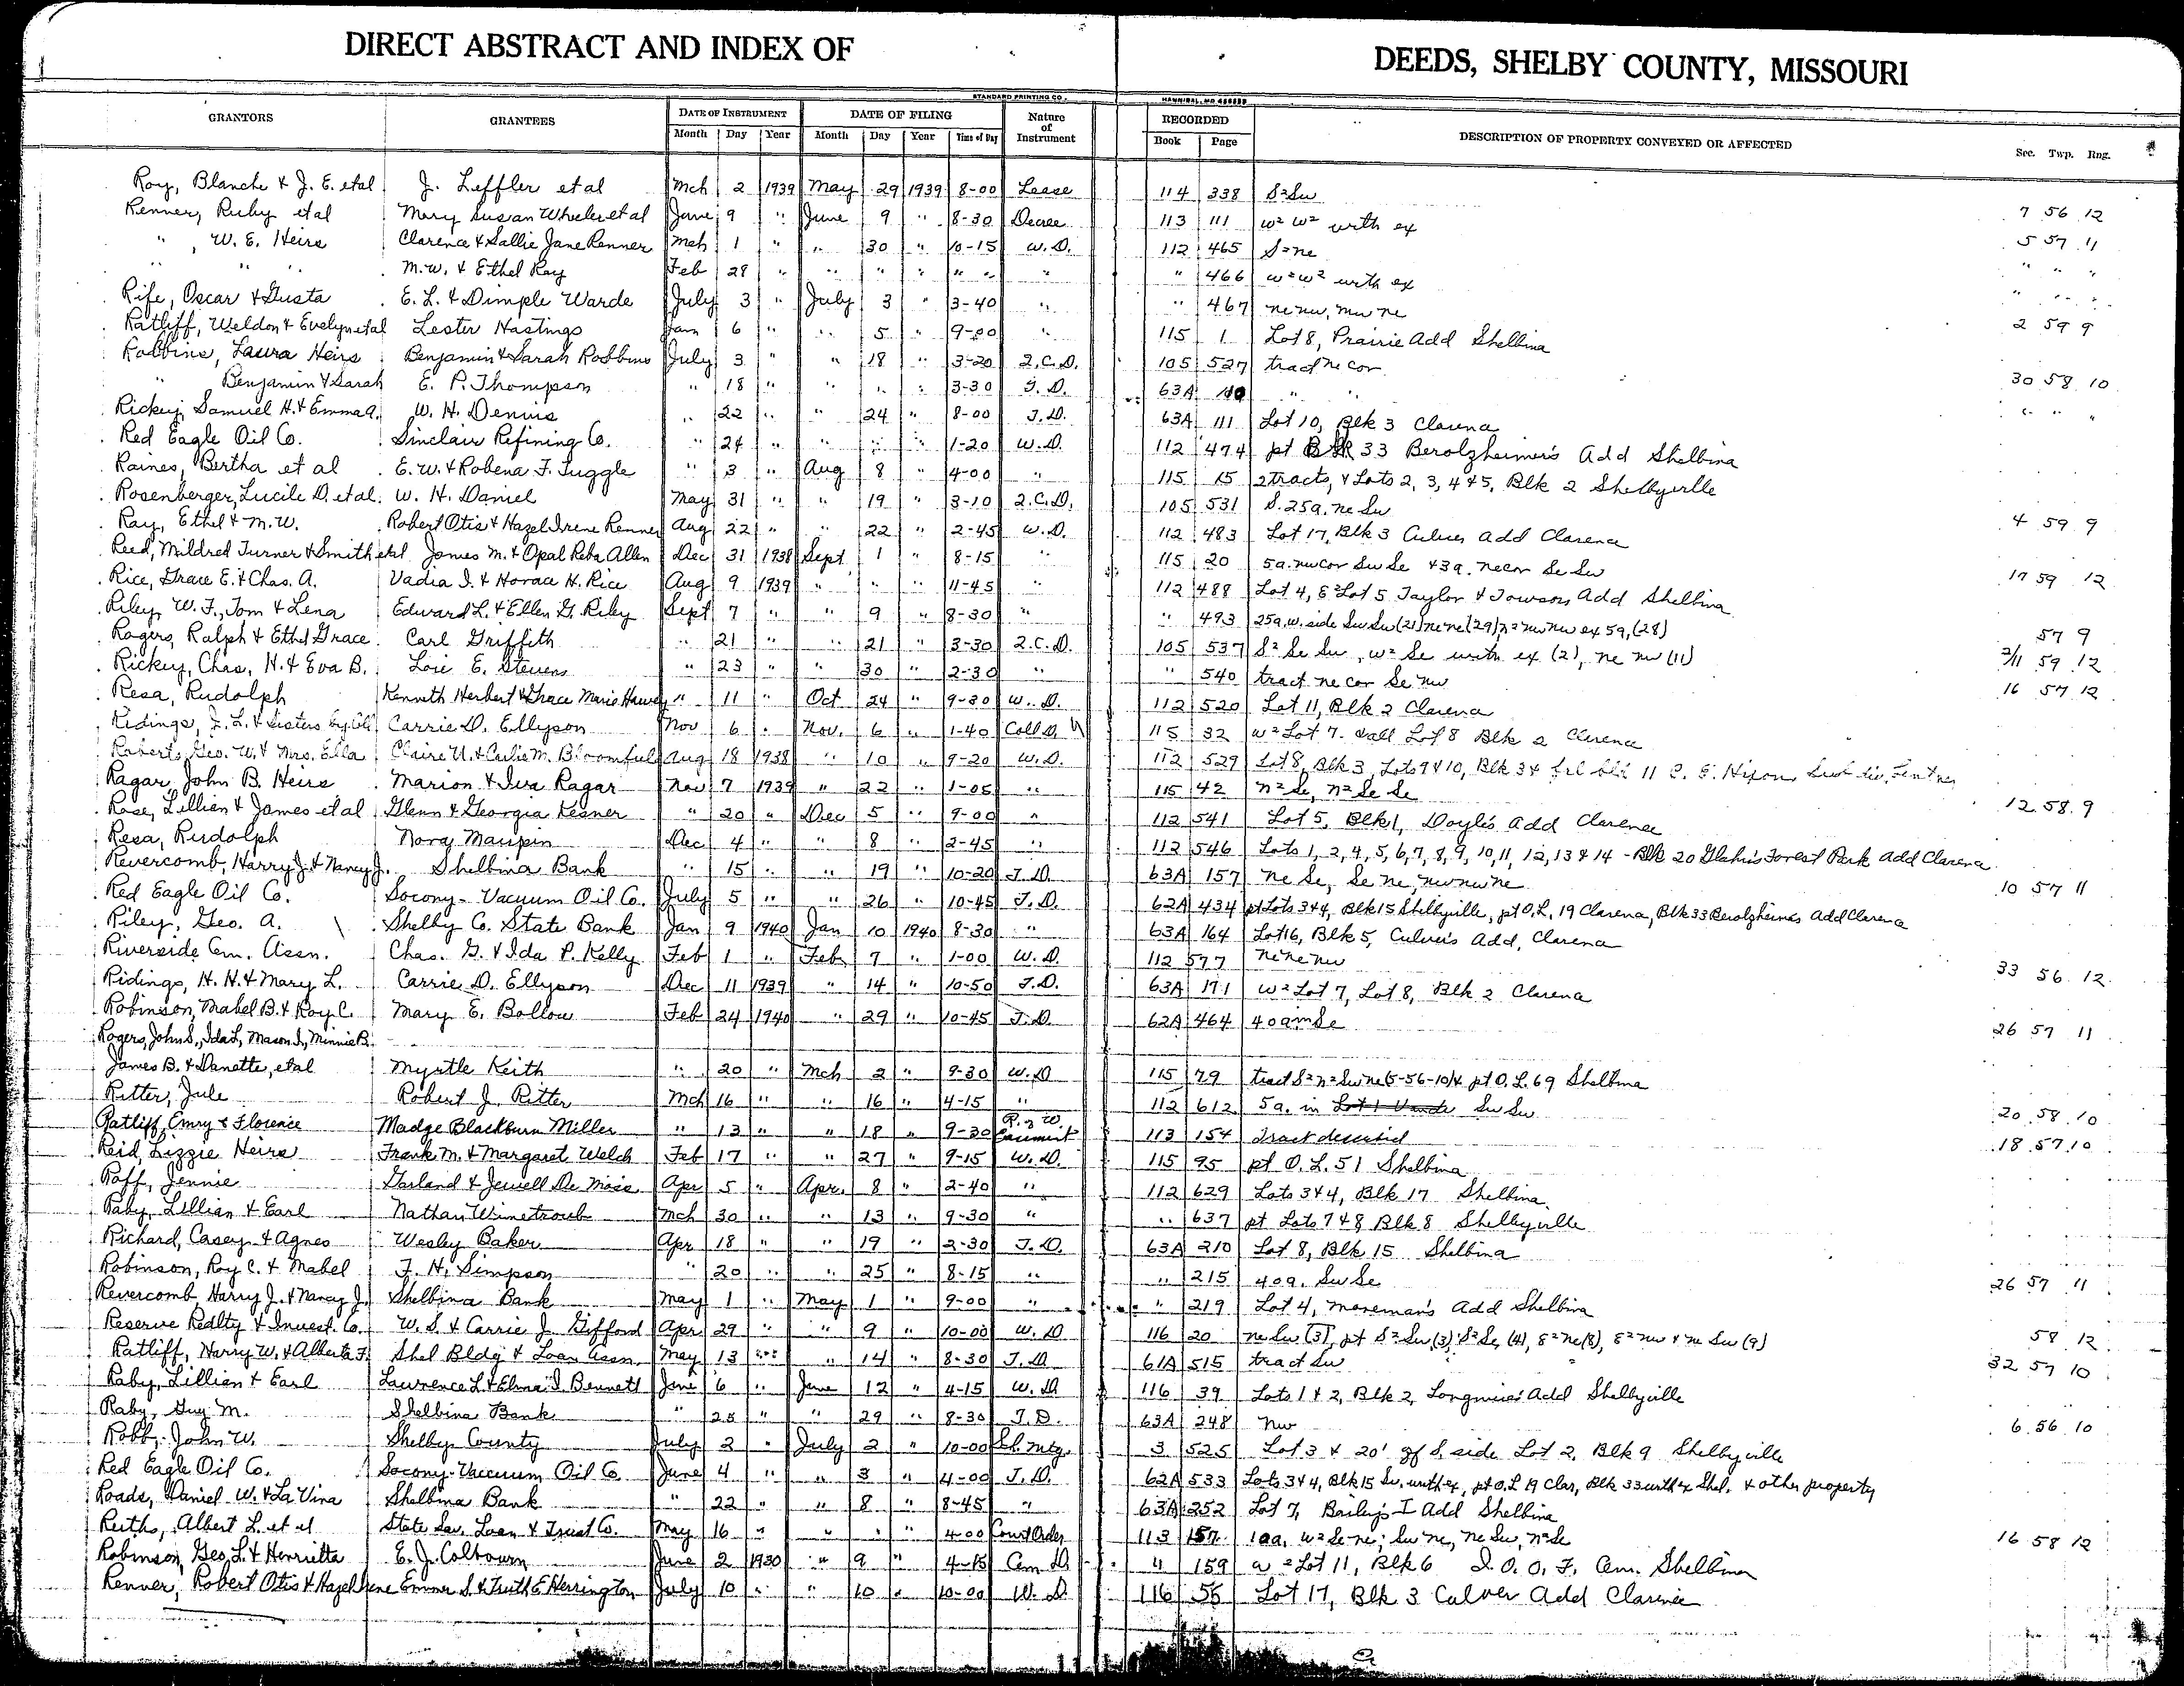 DIRECT ABSTRACT AND INDEX OF DEEDS, SHELBY COUNTY, MISSOURI
STANDARD PRINTING CO. HANNIBAL, MO
GRANTORS GRANTEES DATE OF INSTRUMENT DATE OF FILING Nature of Instrument RECORDED DESCRIPTION OF PROPERTY CONVEYED OR AFFECTED
Month Day Year Month Day Year Time of Day Book Page Sec. Twp. Rng.
Roy, Blanche & J. E. etal J. Leffler et al Mch 2 1939 May 29 1939 8-00 Lease 114 338 S²Sw 7 56 12
Renner, Ruby etal Mary Susan Wheeler et al June 9 " June 9 " 8-30 Decree 113 111 w² w² with ex 5 57 11
" , W. E. Heirs Clarence & Sallie Jane Renner Mch 1 " " 30 " 10-15 W.D. 112 465 S²ne " " "
" " " M.W. & Ethel Ray Feb 28 " " " " " " " " 466 w²w² with ex " " "
Rife, Oscar & Gusta E. L. & Dimple Warde July 3 " July 3 " 3-40 " " 467 ne nw, nw ne 2 59 9
Ratliff, Weldon & Evelyn etal Lester Hastings Jan 6 " " 5 " 9-00 " 115 1 Lot 8, Prairie Add Shelbina
Robbins, Laura Heirs Benjamin & Sarah Robbins July 3 " " 18 " 3-20 Q.C.D. 105 527 tract ne cor 30 58 10
" Benjamin & Sarah E. P. Thompson " 18 " " " " 3-30 T.D. 63A 110 " " " " "
Rickey, Samuel H. & Emma A. W. H. Dennis " 22 " " 24 " 8-00 T.D. 63A 111 Lot 10, Blk 3 Clarence
Red Eagle Oil Co. Sinclair Refining Co. " 24 " " " " 1-20 W.D. 112 474 pt Blk 33 Berolzheimer's Add Shelbina
Raines, Bertha et al E. W. & Robena F. Tuggle " 3 " Aug 8 " 4-00 " 115 15 2 tracts, & Lots 2, 3, 4 & 5, Blk 2 Shelbyville
Rosenberger, Lucile D. etal W. H. Daniel May 31 " " 19 " 3-10 Q.C.D. 105 531 S. 25a. ne Sw 4 59 9
Ray, Ethel & M.W. Robert Otis & Hazel Irene Renner Aug 22 " " 22 " 2-45 W.D. 112 483 Lot 17, Blk 3 Culver Add Clarence
Reed, Mildred Turner & Smith etal James M. & Opal Reba Allen Dec 31 1938 Sept 1 " 8-15 " 115 20 5a. nw cor Sw Se & 3a. ne cor Se Sw 17 59 12
Rice, Grace E. & Chas. A. Vadia I. & Horace H. Rice Aug 9 1939 " " " 11-45 " 112 488 Lot 4, E² Lot 5 Taylor & Towson Add Shelbina
Riley, W. F., Tom & Lena Edward L. & Ellen G. Riley Sept 7 " " 9 " 8-30 " " 493 25a. w. side Sw Sw (21) ne ne (29) n² nw nw ex 5a, (28) 57 9
Rogers, Ralph & Ethel Grace Carl Griffith " 21 " " 21 " 3-30 Q.C.D. 105 537 S² Se Sw, w² Se with ex (2), ne nw (11) 2/11 59 12
Rickey, Chas. H. & Eva B. Loie E. Stevens " 23 " " 30 " 2-30 " " 540 tract ne cor Se nw 16 57 12
Resa, Rudolph Kenneth Herbert & Grace Marie Harvey " 11 " Oct 24 " 9-30 W.D. 112 520 Lot 11, Blk 2 Clarence
Ridings, J. L. & Sisters by Coll Carrie D. Ellyson Nov 6 " Nov. 6 " 1-40 Coll D. 115 32 w² Lot 7. & all Lot 8 Blk 2 Clarence
Roberts, Geo. W. & Mrs. Ella Claire U. & Carlie M. Bloomfield Aug 18 1938 " 10 " 9-20 W.D. 112 529 Lot 8, Blk 3, Lots 9 & 10, Blk 3 & Frl blk 11 C. E. Hixon
Ragar, John B. Heirs Marion & Iva Ragar Nov 7 1939 " 22 " 1-05 " 115 42 n² Se, n² Se Se 12 58 9
Rose, Lillian & James et al Glenn & Georgia Kesner " 20 " Dec 5 " 9-00 " 112 541 Lot 5, Blk 1, Doyle's Add Clarence
Resa, Rudolph Nora Maupin Dec 4 " " 8 " 2-45 " 112 546 Lots 1, 2, 4, 5, 6, 7, 8, 9, 10, 11, 12, 13 & 14 - Blk 20 Forest Park Add Clarence
Revercomb, Harry J. & Nancy J. Shelbina Bank " 15 " " 19 " 10-20 T.D. 63A 157 ne Se, Se ne, nw nw ne 10 57 11
Red Eagle Oil Co. Socony-Vacuum Oil Co. July 5 " " 26 " 10-45 T.D. 62A 434 pt Lots 3 & 4, Blk 15 Shelbyville, pt O.L. 19 Clarence, Blk 33 Berolzheimer's Add Clarence
Riley, Geo. A. Shelby Co. State Bank Jan 9 1940 Jan 10 1940 8-30 " 63A 164 Lot 16, Blk 5, Culver's Add, Clarence
Riverside Cem. Assn. Chas. G. & Ida P. Kelly Feb 1 " Feb 7 " 1-00 W.D. 112 577 ne ne nw 33 56 12
Ridings, H. H. & Mary L. Carrie D. Ellyson Dec 11 1939 " 14 " 10-50 T.D. 63A 171 w² Lot 7, Lot 8, Blk 2 Clarence
Robinson, Mabel B. & Roy C. Mary E. Bollow Feb 24 1940 " 29 " 10-45 T.D. 62A 464 40a Se 26 57 11
Rogers, John S., Ida L., Mason I., Minnie B.
James B. & Danette, etal Myrtle Keith " 20 " Mch 2 " 9-30 W.D. 115 79 tract S² n² Sw ne (5-56-10) & pt O.L. 69 Shelbina
Ritter, Jule Robert J. Ritter Mch 16 " " 16 " 4-15 " 112 612 5a. in Sw Sw 20 58 10
Ratliff, Emry & Florence Madge Blackburn Miller " 13 " " 18 " 9-30 R. of W. Easement 113 154 Tract described 18 57 10
Reid, Lizzie Heirs Frank M. & Margaret Welch Feb 17 " " 27 " 9-15 W.D. 115 95 pt O.L. 51 Shelbina
Roff, Jennie Garland & Jewell De Moss Apr 5 " Apr. 8 " 2-40 " 112 629 Lots 3 & 4, Blk 17 Shelbina
Raby, Lillian & Earl Nathan Winetroub Mch 30 " " 13 " 9-30 " " 637 pt Lots 7 & 8 Blk 8 Shelbyville
Richard, Casey & Agnes Wesley Baker Apr 18 " " 19 " 2-30 T.D. 63A 210 Lot 8, Blk 15 Shelbina
Robinson, Roy C. & Mabel F. H. Simpson " 20 " " 25 " 8-15 " " 215 40a. Sw Se 26 57 11
Revercomb Harry J. & Nancy J. Shelbina Bank May 1 " May 1 " 9-00 " " 219 Lot 4, Moreman's Add Shelbina
Reserve Realty & Invest. Co. W. S. & Carrie J. Gifford Apr 29 " " 9 " 10-00 W.D. 116 20 ne Sw (3), pt S² Sw (3) S² Se, (4), E² ne (8), E² nw & ne Sw (9) 58 12
Ratliff, Harry W. & Alberta F. Shel Bldg & Loan Assn. May 13 " " 14 " 8-30 T.D. 61A 515 tract Sw 32 57 10
Raby, Lillian & Earl Lawrence L. & Elma I. Bennett June 6 " June 12 " 4-15 W.D. 116 39 Lots 1 & 2, Blk 2, Longmire's Add Shelbyville
Raby, Guy M. Shelbina Bank " 28 " " 29 " 8-30 T.D. 63A 248 nw 6 56 10
Robb, John W. Shelby County July 2 " July 2 " 10-00 Sch. Mtg. 3 525 Lot 3 & 20' of S. side Lot 2, Blk 9 Shelbyville
Red Eagle Oil Co. Socony-Vacuum Oil Co. June 4 " " 3 " 4-00 T.D. 62A 533 Lots 3 & 4, Blk 15 Sv. with ex, pt O.L 19 Clar, Blk 33 with ex Shel. & other property
Roads, Daniel W. & La Vina Shelbina Bank " 22 " " 8 " 8-45 " 63A 252 Lot 7, Bailey's I Add Shelbina
Reith, Albert L. et al State Sav. Loan & Trust Co. May 16 " " " " 4-00 Court Order 113 157 10a. w² Se ne; Sw ne, ne Sw, n² Se 16 58 12
Robinson, Geo. L. & Henrietta E. J. Colbourn June 2 1930 " 9 " 4-15 Cem D. " 159 w² Lot 11, Blk 6 I. O. O. F. Cem. Shelbina
Renner, Robert Otis & Hazel Irene Emmer S. & Truth E Herrington July 10 " " 10 " 10-00 W.D. 116 55 Lot 17, Blk 3 Culver Add Clarence